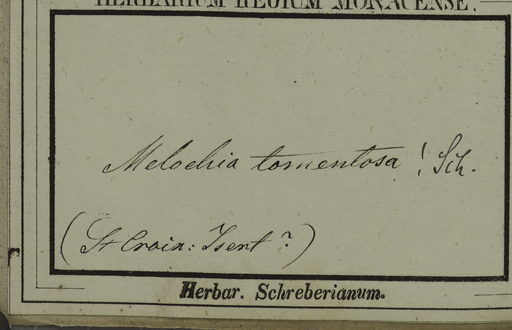 HERBARIUM REGIUM MONACENSE.
Melochia tomentosa ! Sch.
(St Croix: Isert ?)
Herbar. Schreberianum.